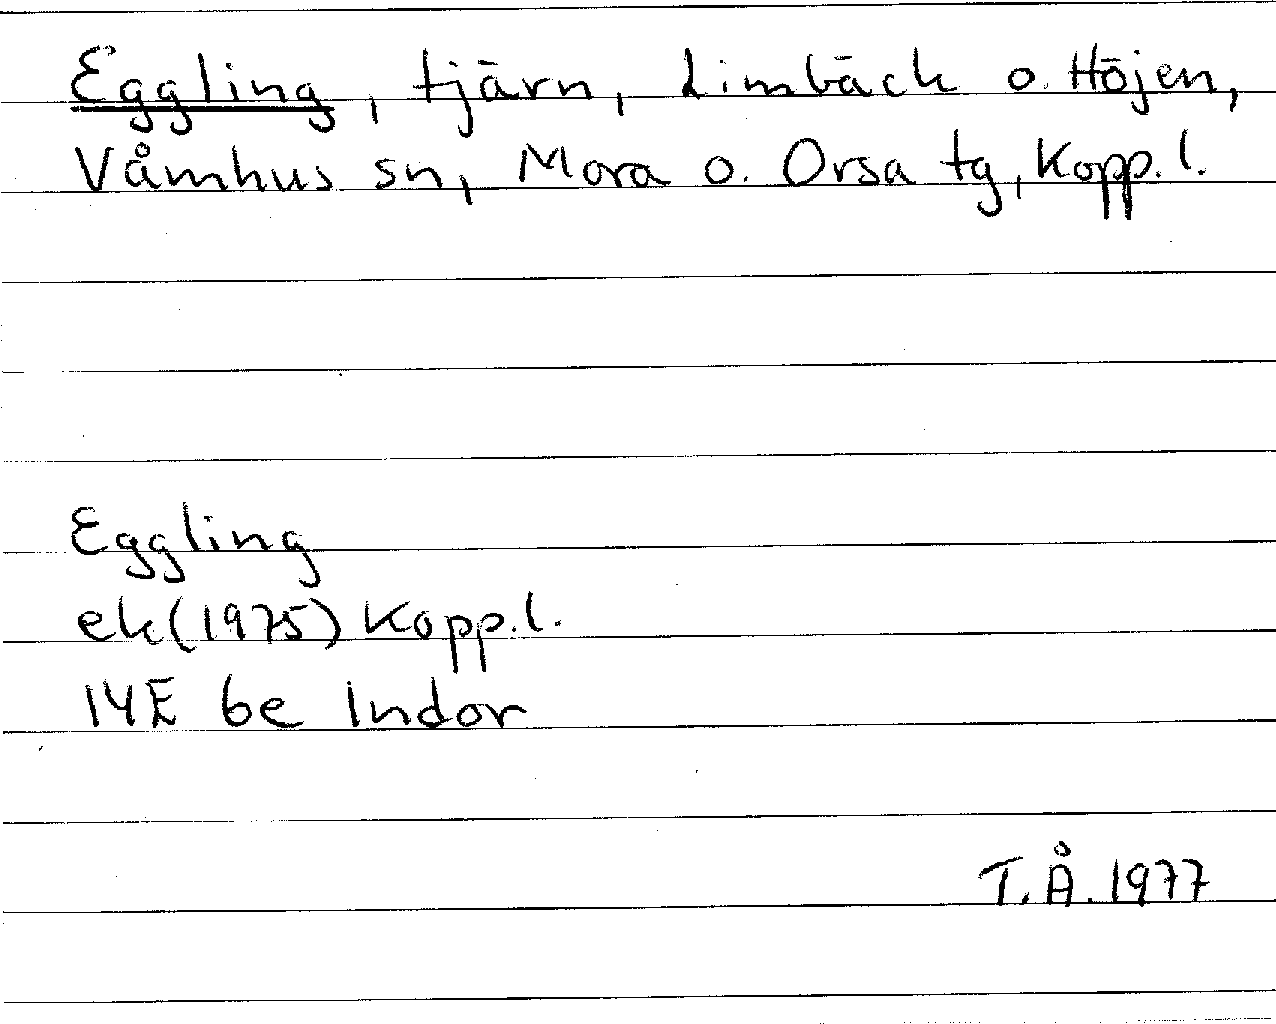 Eggling, tjärn, Limbäck o. Höjen,
Våmhus sn, Mora o. Orsa tg, Kopp. l.
Eggling
ek (1975) Kopp. l.
14E 6e Indor
T. Å. 1977